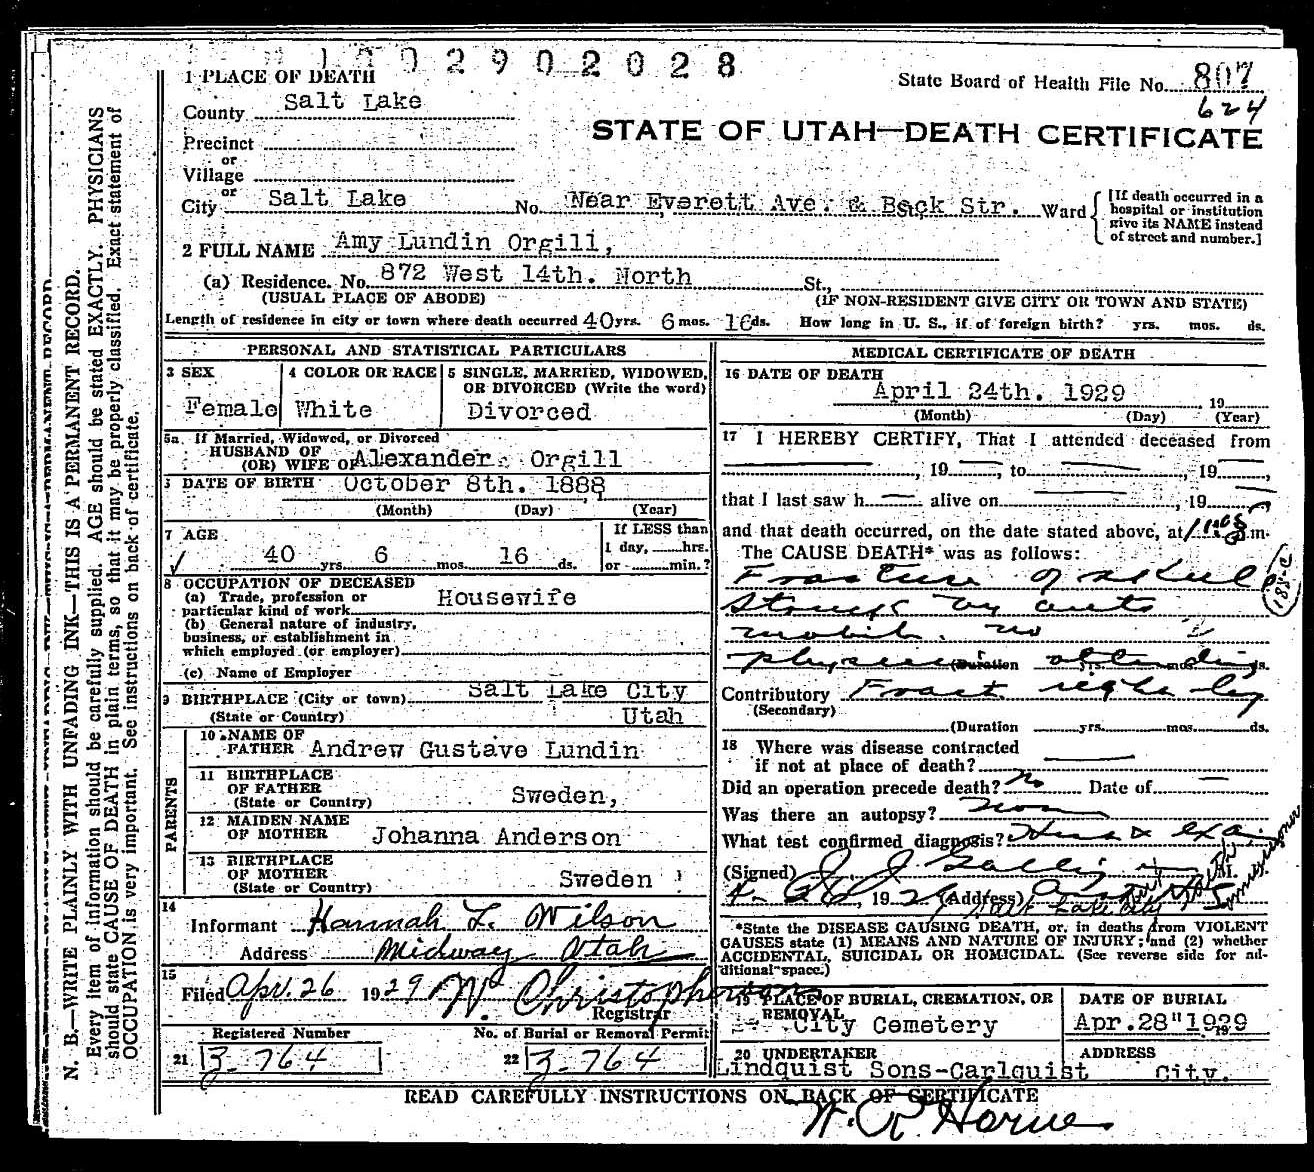 2 9 0 2 0 2 8
1 PLACE OF DEATH
State Board of Health File No. 807
624
County Salt Lake
STATE OF UTAH—DEATH CERTIFICATE
Precinct
or
Village
or
City Salt Lake No. Near Everett Ave. & Beck Str. Ward
[If death occurred in a hospital or institution give its NAME instead of street and number.]
2 FULL NAME Amy Lundin Orgill,
(a) Residence. No. 872 West 14th. North St.,
(USUAL PLACE OF ABODE) (IF NON-RESIDENT GIVE CITY OR TOWN AND STATE)
Length of residence in city or town where death occurred 40 yrs. 6 mos. 16 ds. How long in U. S., if of foreign birth? yrs. mos. ds.
PERSONAL AND STATISTICAL PARTICULARS
3 SEX Female
4 COLOR OR RACE White
5 SINGLE, MARRIED, WIDOWED, OR DIVORCED (Write the word) Divorced
5a If Married, Widowed, or Divorced
HUSBAND OF
(OR) WIFE OF Alexander Orgill
DATE OF BIRTH October 8th. 1888
(Month) (Day) (Year)
7 AGE 40 yrs. 6 mos. 16 ds.
If LESS than
1 day, hrs.
or min.?
8 OCCUPATION OF DECEASED
(a) Trade, profession or
particular kind of work Housewife
(b) General nature of industry,
business, or establishment in
which employed (or employer)
(c) Name of Employer
9 BIRTHPLACE (City or town) Salt Lake City
(State or Country) Utah
PARENTS
10 NAME OF
FATHER Andrew Gustave Lundin
11 BIRTHPLACE
OF FATHER
(State or Country) Sweden,
12 MAIDEN NAME
OF MOTHER Johanna Anderson
13 BIRTHPLACE
OF MOTHER
(State or Country) Sweden
14
Informant Hannah L. Wilson
Address Midway Utah
15
Filed Apr. 26 1929 W. Christopherson
Registrar
Registered Number No. of Burial or Removal Permit
21 3-764 22 3-764
MEDICAL CERTIFICATE OF DEATH
16 DATE OF DEATH
April 24th. 1929 19
(Month) (Day) (Year)
17 I HEREBY CERTIFY, That I attended deceased from
, 19 to , 19
that I last saw h alive on , 19
and that death occurred, on the date stated above, at m.
The CAUSE DEATH* was as follows:
Fracture of skull
struck by auto
mobile. no
physician attending
(Duration yrs. mos. ds.
188-c
Contributory Fract right leg
(Secondary)
(Duration yrs. mos. ds.
18 Where was disease contracted
if not at place of death?
Did an operation precede death? No Date of
Was there an autopsy?
What test confirmed diagnosis?
(Signed)
, 1929 (Address) Salt Lake City
*State the DISEASE CAUSING DEATH, or, in deaths from VIOLENT
CAUSES state (1) MEANS AND NATURE OF INJURY; and (2) whether
ACCIDENTAL, SUICIDAL OR HOMICIDAL. (See reverse side for ad-
ditional space.)
19 PLACE OF BURIAL, CREMATION, OR
REMOVAL
City Cemetery
DATE OF BURIAL
Apr. 28" 1929
19
20 UNDERTAKER
Lindquist Sons-Carlquist
ADDRESS
City.
READ CAREFULLY INSTRUCTIONS ON BACK OF CERTIFICATE
W. R. Horne
N. B.—WRITE PLAINLY WITH UNFADING INK—THIS IS A PERMANENT RECORD.
Every item of information should be carefully supplied. AGE should be stated EXACTLY. PHYSICIANS
should state CAUSE OF DEATH in plain terms, so that it may be properly classified. Exact statement of
OCCUPATION is very important. See instructions on back of certificate.